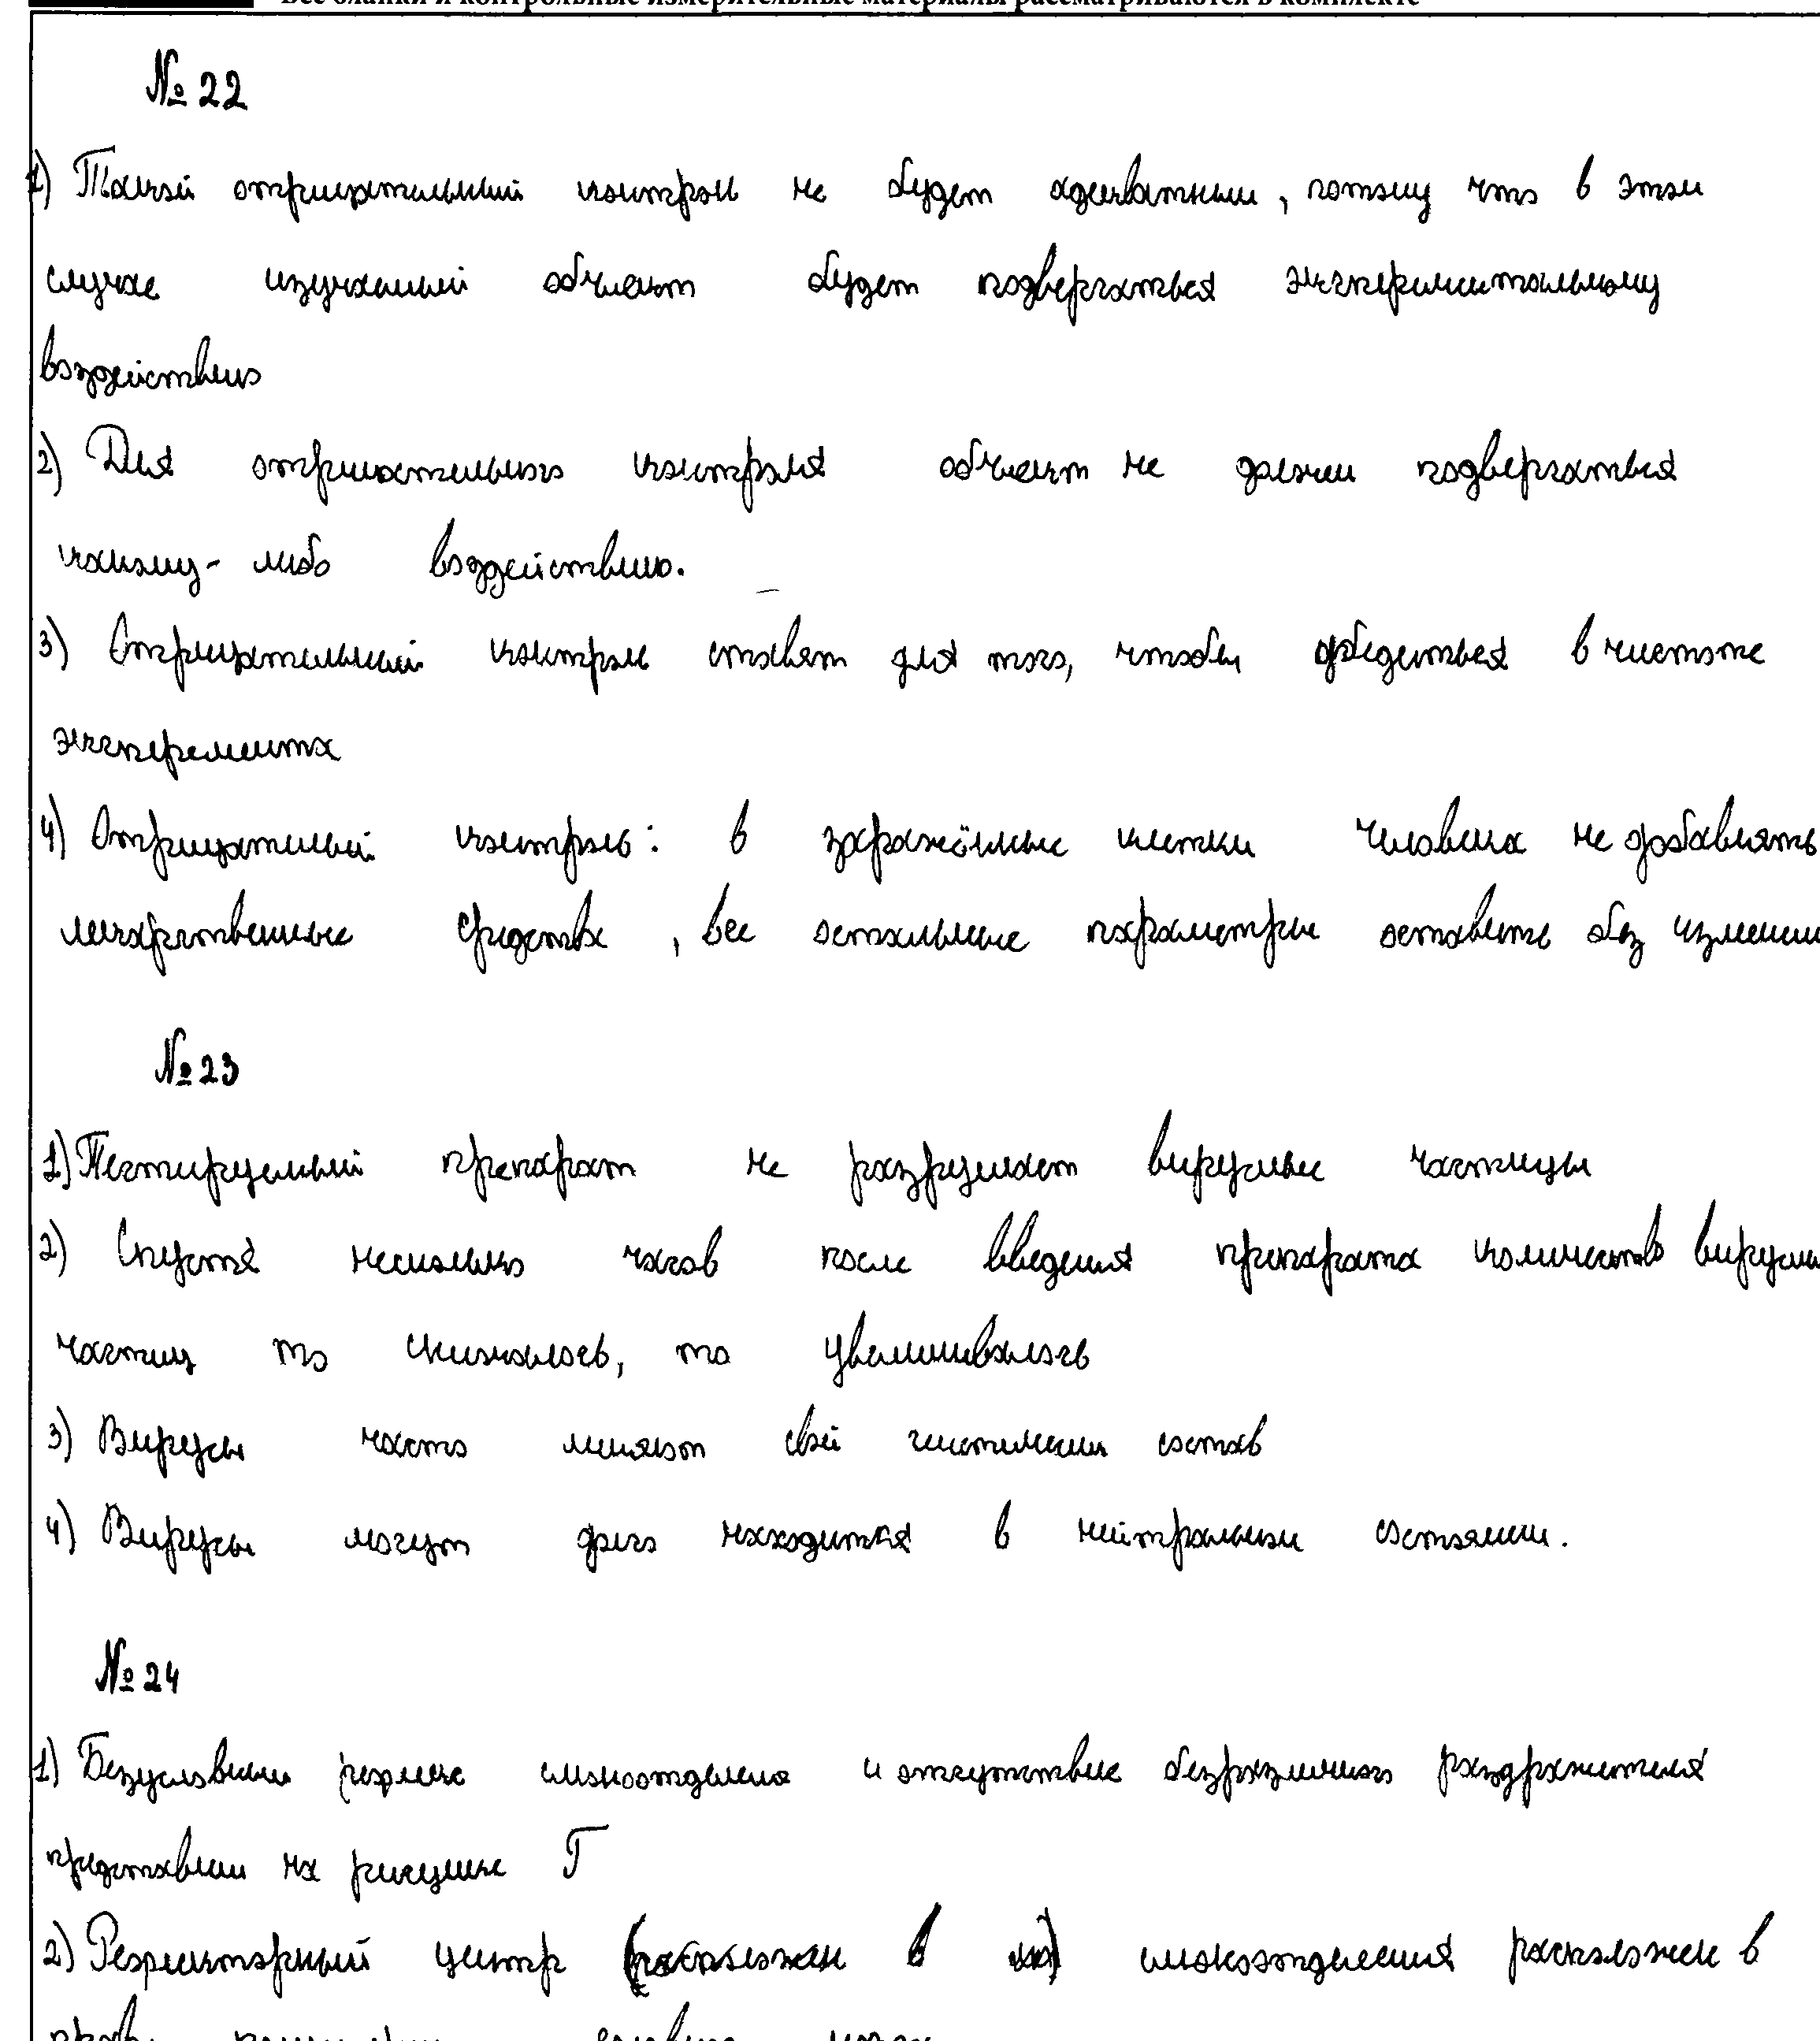 Все бланки и контрольные измерительные материалы рассматриваются в комплекте
№ 22
1) Такой отрицательный контроль не будет адекватным, потому что в этом
случае изучаемый объект будет подвергаться экспериментальному
воздействию
2) Для отрицательного контроля объект не должен подвергаться
какому-либо воздействию.
3) Отрицательный контроль ставят для того, чтобы убедиться в чистоте
эксперемента
4) Отрицательный контроль: в заражённые клетки человека не добавлять
лекарственные средства, все остальные параметры оставить без изменени
№ 23
1) Тестируемый препарат не разрушает вирусные частицы
2) Спустя несколько часов после введения препарата количество вирусны
частиц то снижалось, то увеличивалось
3) Вирусы часто меняют свой генетический состав
4) Вирусы могут долго находиться в нейтральном состоянии.
№ 24
1) Безусловный рефлекс слюноотделения и отсутствие безразличного раздражителя
представлен на рисунке Г
2) Рефлекторный центр (расположен в) слюноотделения расположен в
головного мозга